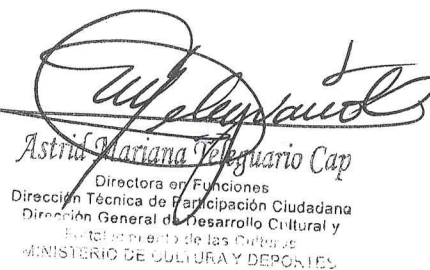 Astrid Mariana Teleguario Cap
Directora en Funciones
Dirección Técnica de Participación Ciudadana
Dirección General de Desarrollo Cultural y
Fortalecimiento de las Culturas
MINISTERIO DE CULTURA Y DEPORTES